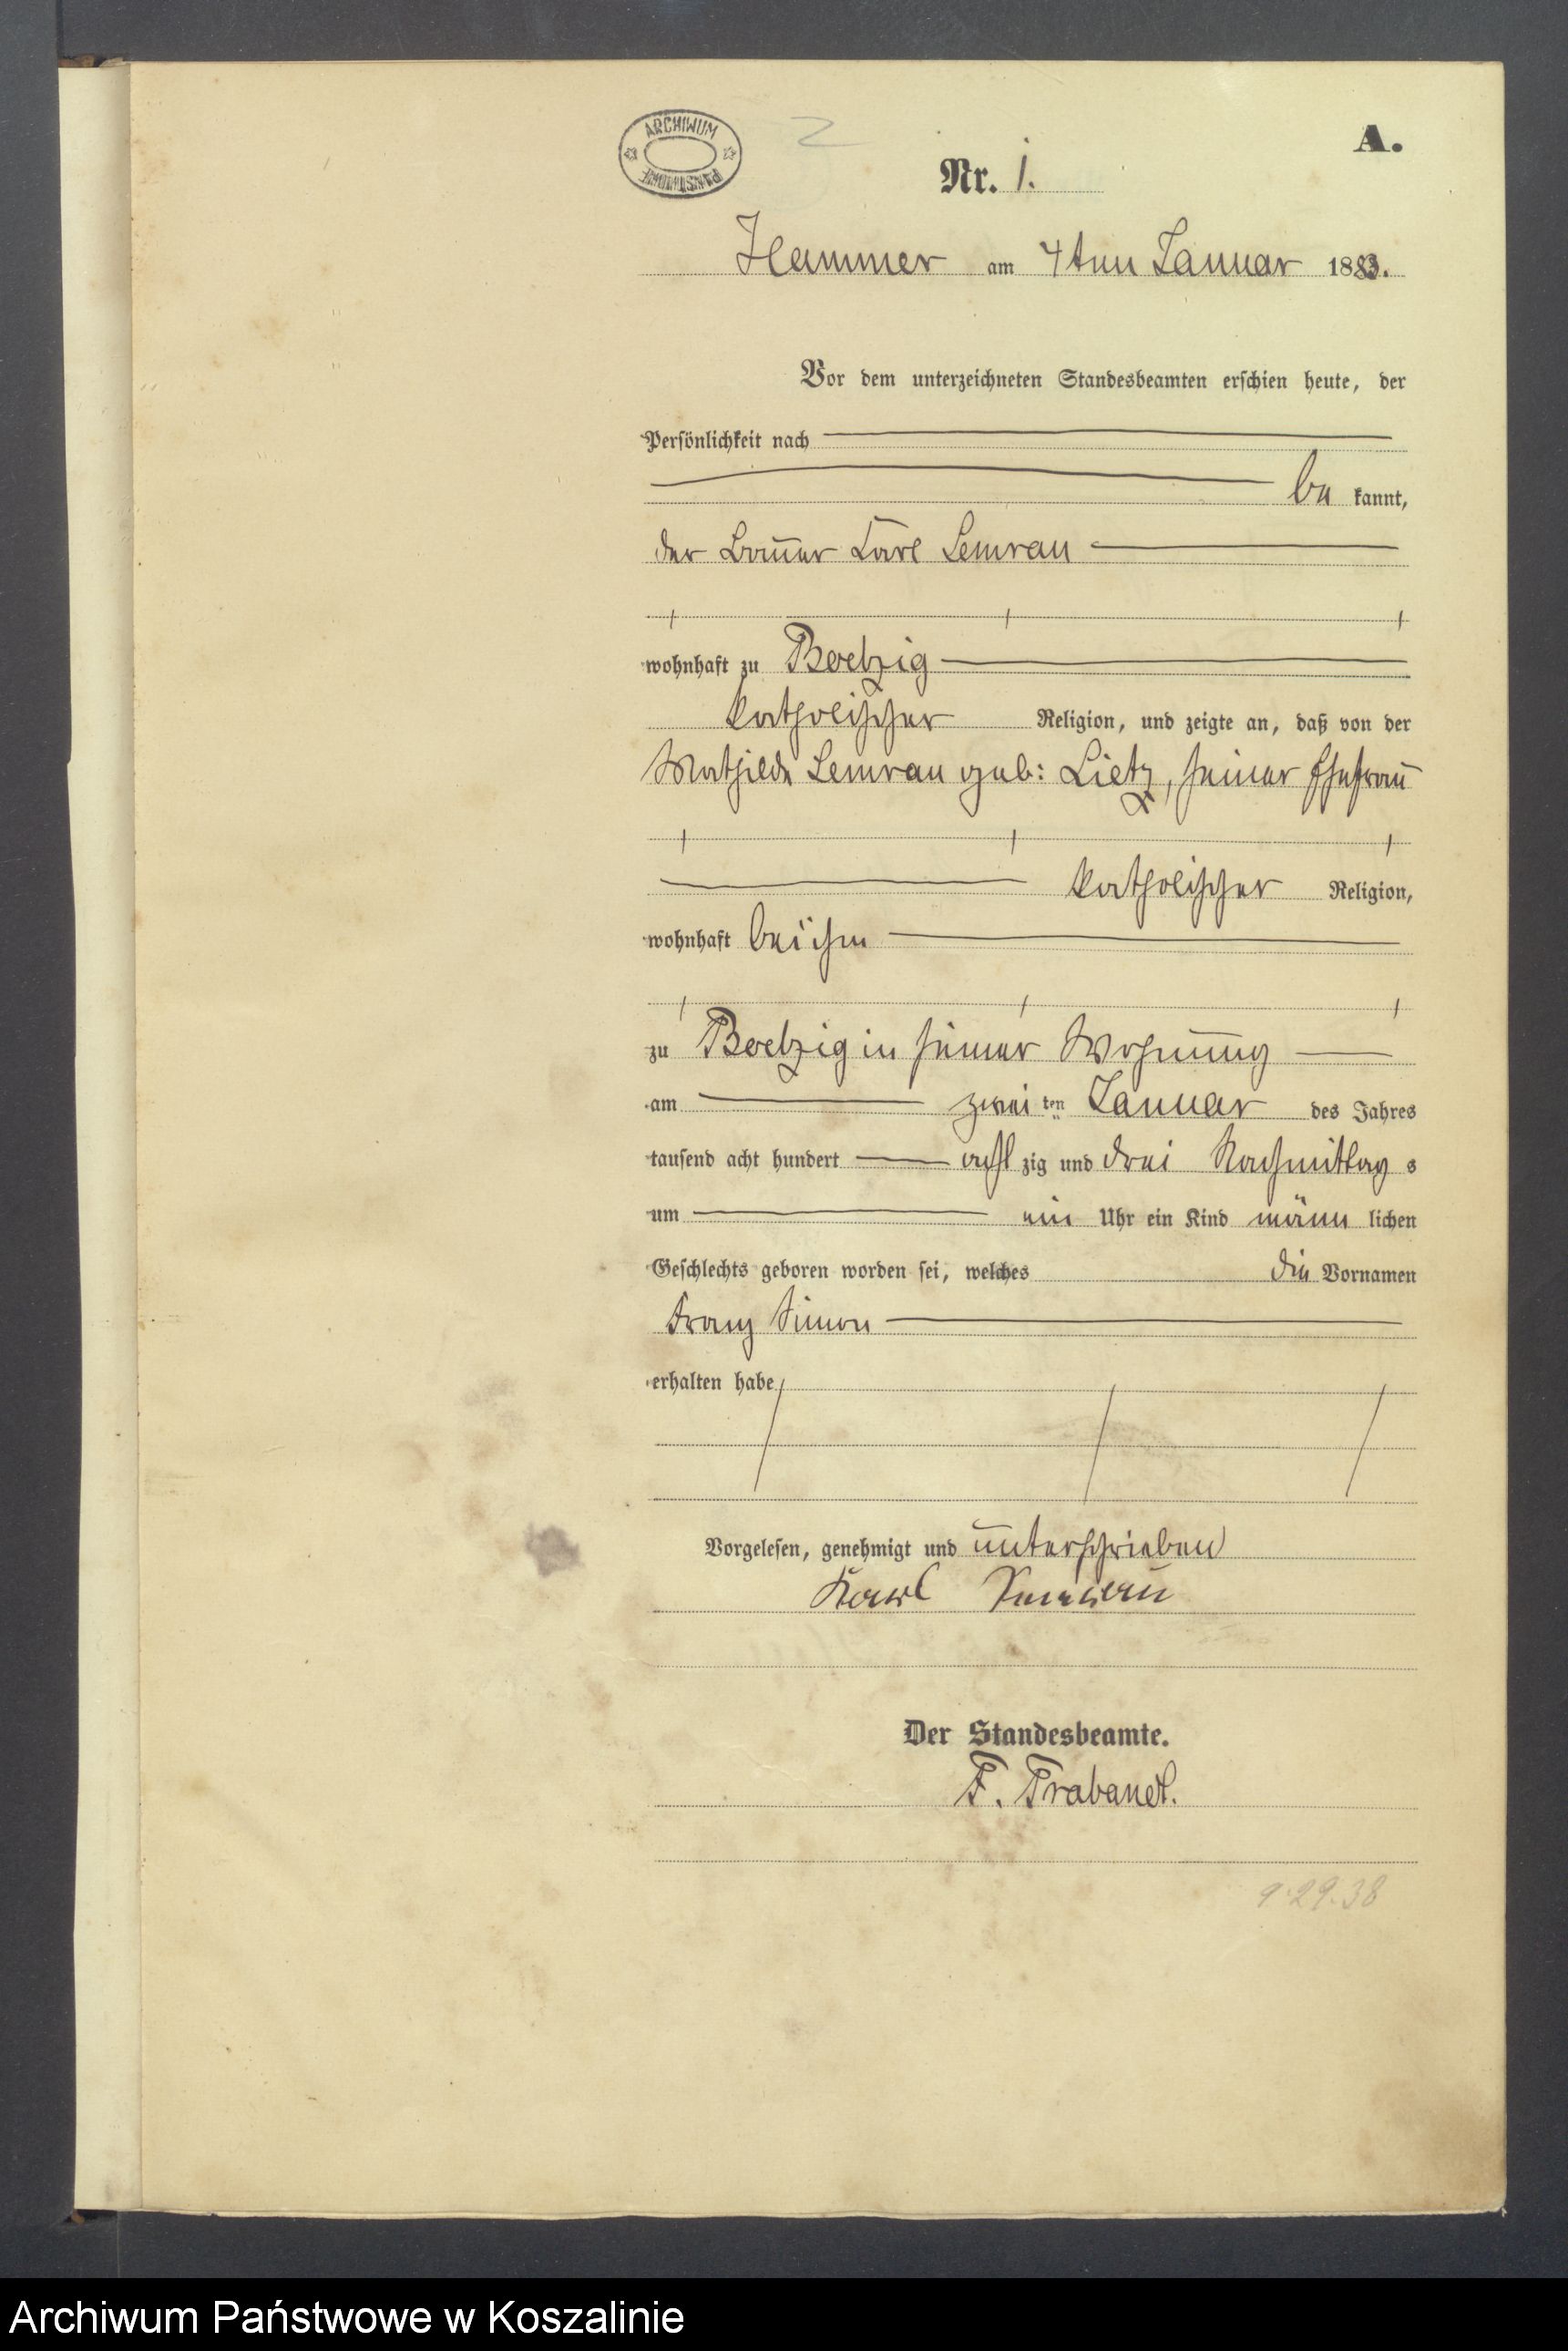 ARCHIWUM
PAŃSTWOWE
2
A.
Nr. 1.
Hammer am 4ten Januar 1883.
Vor dem unterzeichneten Standesbeamten erschien heute, der
Persönlichkeit nach
be kannt,
der Bauer Carl Semrau
wohnhaft zu Boetzig
katholischer Religion, und zeigte an, daß von der
Mathilde Semrau geb: Lietz, seiner Ehefrau
katholischer Religion,
wohnhaft bei ihm
zu Boetzig in seiner Wohnung
am zwei ten Januar des Jahres
tausend acht hundert acht zig und drei Nachmittag s
um ein Uhr ein Kind männ lichen
Geschlechts geboren worden sei, welches die Vornamen
Franz Simon
erhalten habe
Vorgelesen, genehmigt und unterschrieben
Karl Semrau
Der Standesbeamte.
F. Prabandt.
9.29.38
Archiwum Państwowe w Koszalinie